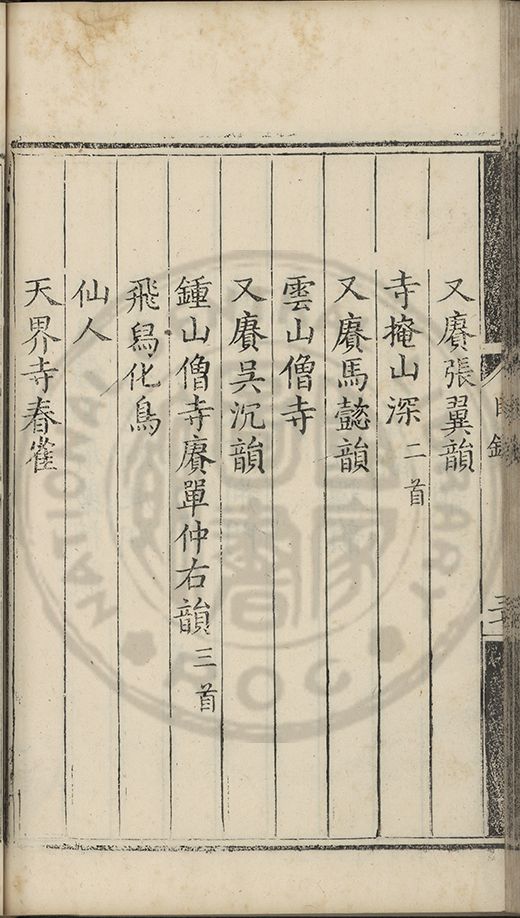 又賡張翼韻
寺掩山深 二首
又賡馬懿韻
雲山僧寺
又賡吳沉韻
鍾山僧寺賡單仲右韻 三首
飛舄化鳥
仙人
天界寺春雀